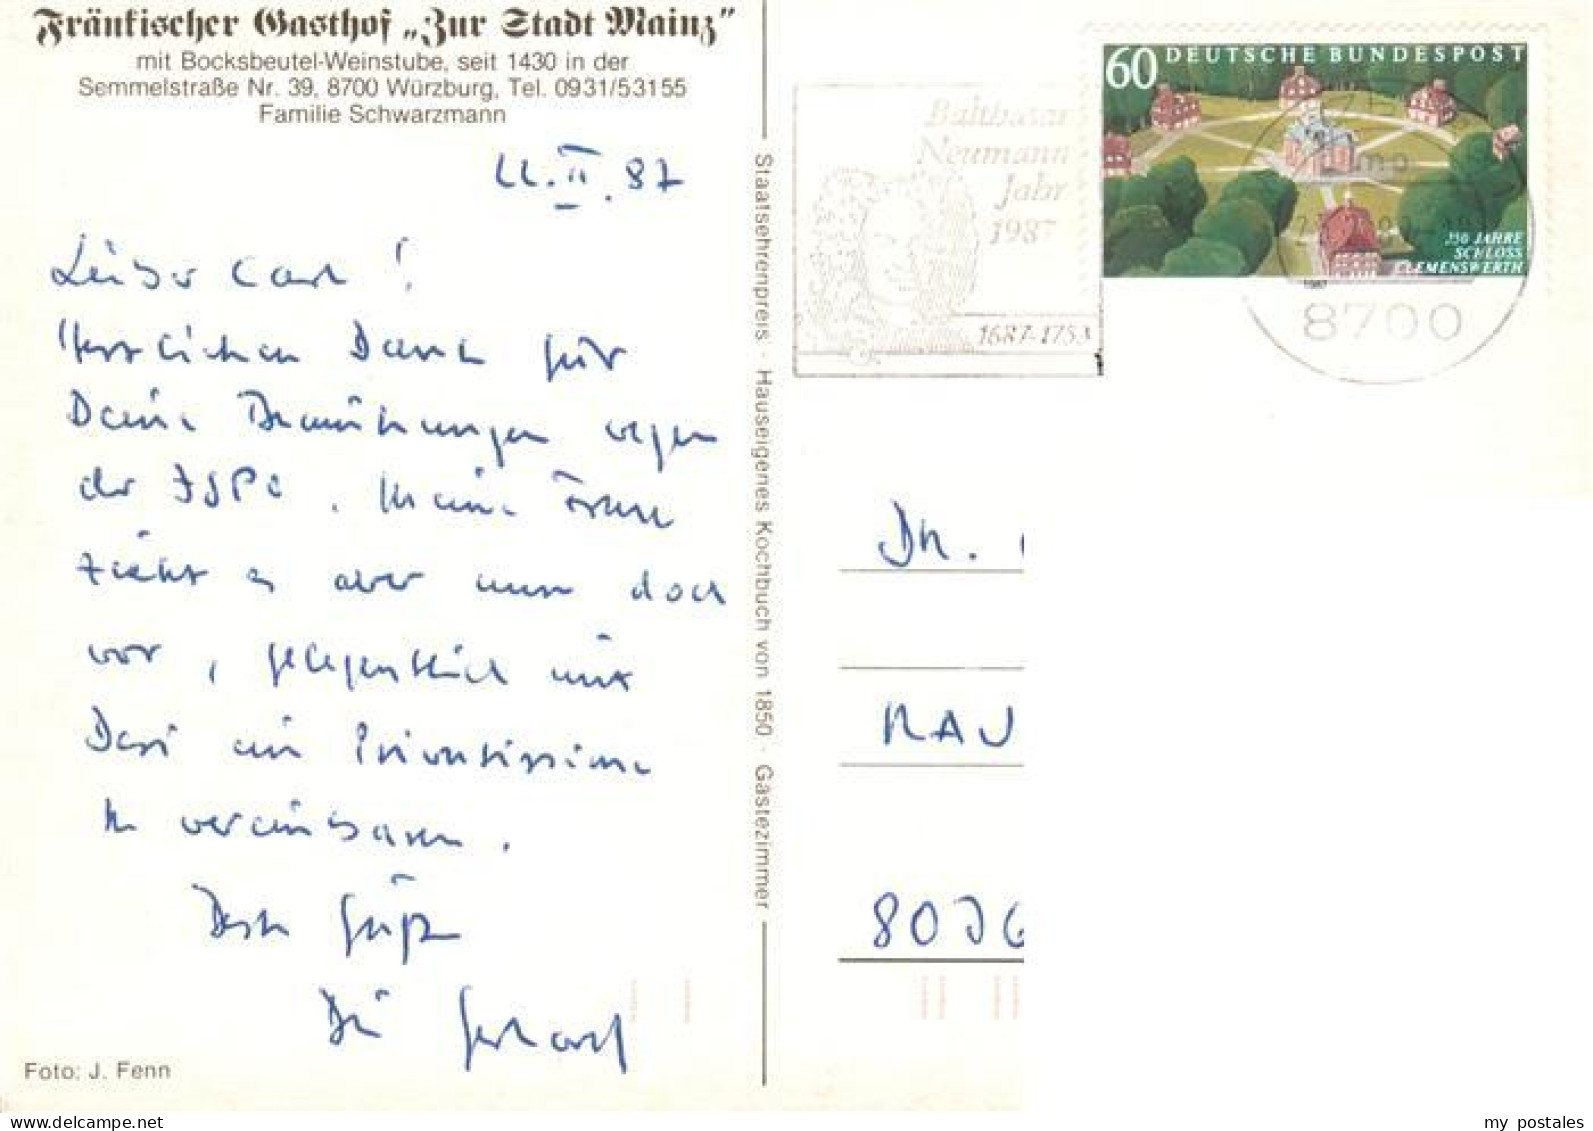 Fränkischer Gasthof „Zur Stadt Mainz”
mit Bocksbeutel-Weinstube, seit 1430 in der
Semmelstraße Nr. 39, 8700 Würzburg, Tel. 0931/53155
Familie Schwarzmann
22.II.87
Lieber Carl!
Herzlichen Dank für
Deine Bemühungen wegen
der . Meine Frau
zieht es aber nun doch
vor, gelegentlich mit
Dasi ein Privatissime
zu vereinbaren.
Beste Grüße
Dein Gerhard
Foto: J. Fenn
Staatsehrenpreis · Hauseigenes Kochbuch von 1850 · Gästezimmer
Balthasar
Neumann
Jahr
1987
1687-1753
60 DEUTSCHE BUNDESPOST
350 JAHRE
SCHLOSS
CLEMENSWERTH
1987
8700
Dr.
RAU
80
my postales
delcampe.net